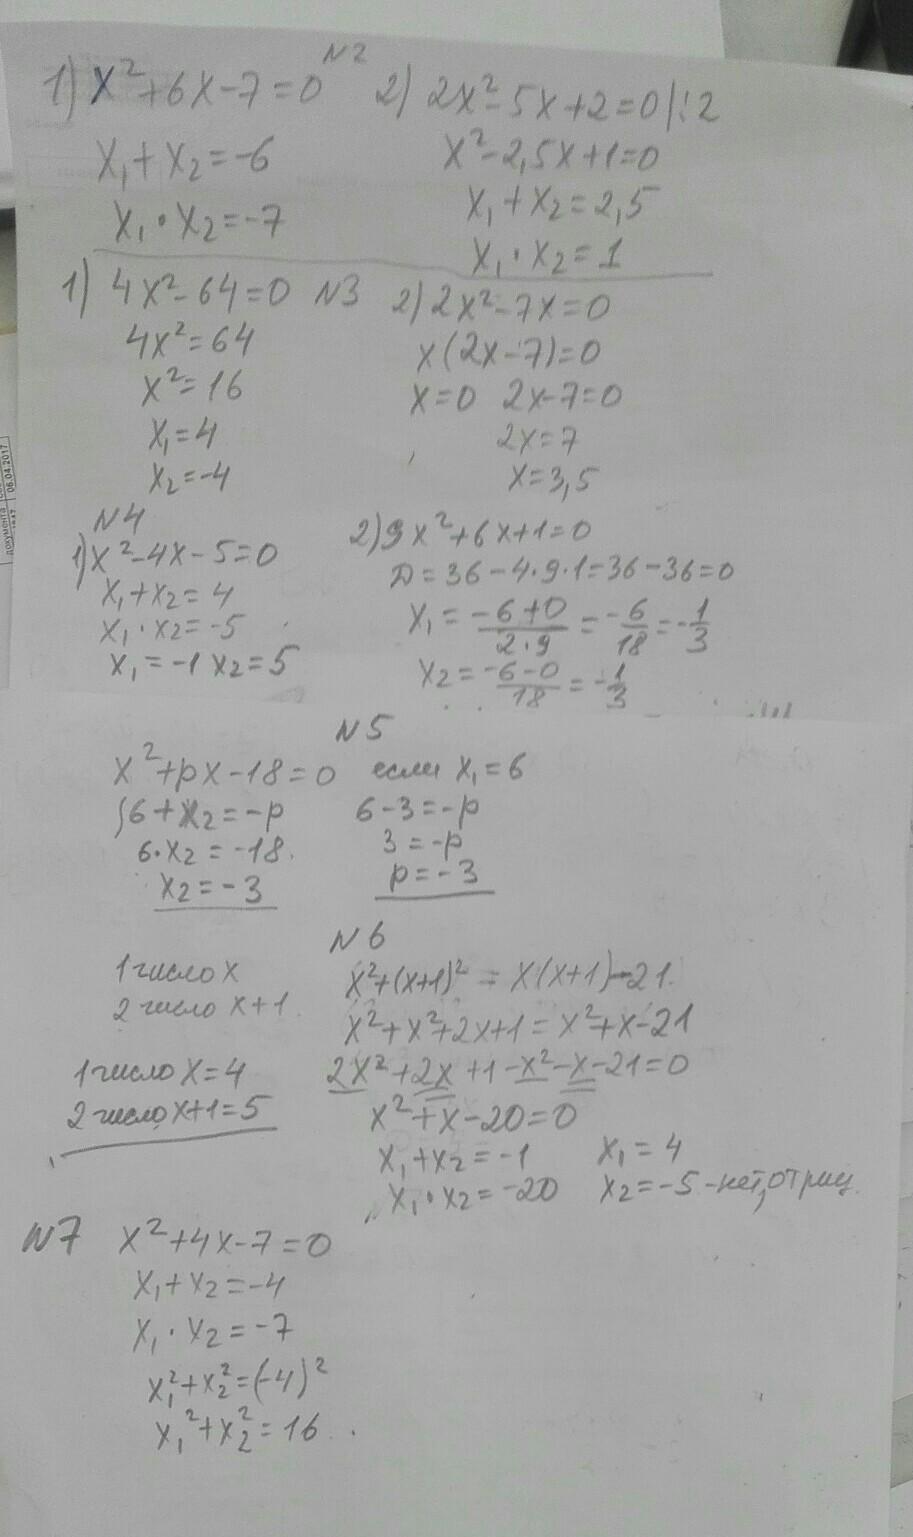 N2
1) x²+6x-7=0
x₁+x₂=-6
x₁·x₂=-7
2) 2x²-5x+2=0|:2
x²-2,5x+1=0
x₁+x₂=2,5
x₁·x₂=1
N3
1) 4x²-64=0
4x²=64
x²=16
x₁=4
x₂=-4
2) 2x²-7x=0
x(2x-7)=0
x=0 2x-7=0
2x=7
x=3,5
N4
1) x²-4x-5=0
x₁+x₂=4
x₁·x₂=-5
x₁=-1 x₂=5
2) 9x²+6x+1=0
D=36-4·9·1=36-36=0
x₁=(-6+0)/(2·9)=-6/18=-1/3
x₂=(-6-0)/18=-1/3
N5
x²+px-18=0 если x₁=6
{6+x₂=-p
6·x₂=-18
x₂=-3
6-3=-p
3=-p
p=-3
N6
1 число x
2 число x+1
x²+(x+1)²=x(x+1)-21
x²+x²+2x+1=x²+x-21
2x²+2x+1-x²-x-21=0
x²+x-20=0
x₁+x₂=-1
x₁·x₂=-20
x₁=4
x₂=-5-нет, отриц.
1 число x=4
2 число x+1=5
N7
x²+4x-7=0
x₁+x₂=-4
x₁·x₂=-7
x₁²+x₂²=(-4)²
x₁²+x₂²=16
документа
06.04.2017